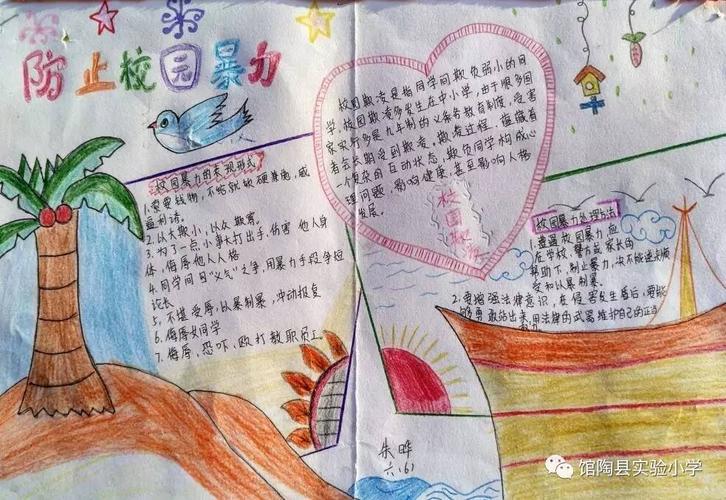 防止校园暴力
校园暴力的表现形式
1.索要钱物,不给就软硬兼施,威
逼利诱。
2.以大欺小,以众欺寡。
3.为了一点小事大打出手,伤害他人身
体,侮辱他人人格
4.同学间因"义气"之争,用暴力手段争短
论长
5.不堪受辱,以暴制暴,冲动报复
6.侮辱女同学
7.侮辱,恐吓,殴打教职员工。
校园欺凌是指同学间欺负弱小的日
学,校园欺凌多发生在中小学,由于很多国
家实行多是九年制的义务教育制度,受害
者会长期受到欺凌,欺凌过程,蕴藏着
一个复杂的互动状态,欺负同学构成心
理问题,影响健康,甚至影响人格
发展。
校园欺
校园暴力处理方法
1.遭遇校园暴力,应
在学校、警方或家长的
帮助下,制止暴力,决不能逆来顺
受和以暴制暴。
2.要增强法律意识,在侵害发生后,要能
够勇敢站出来,用法律的武器维护自己的正当
朱晔
六(6)
馆陶县实验小学